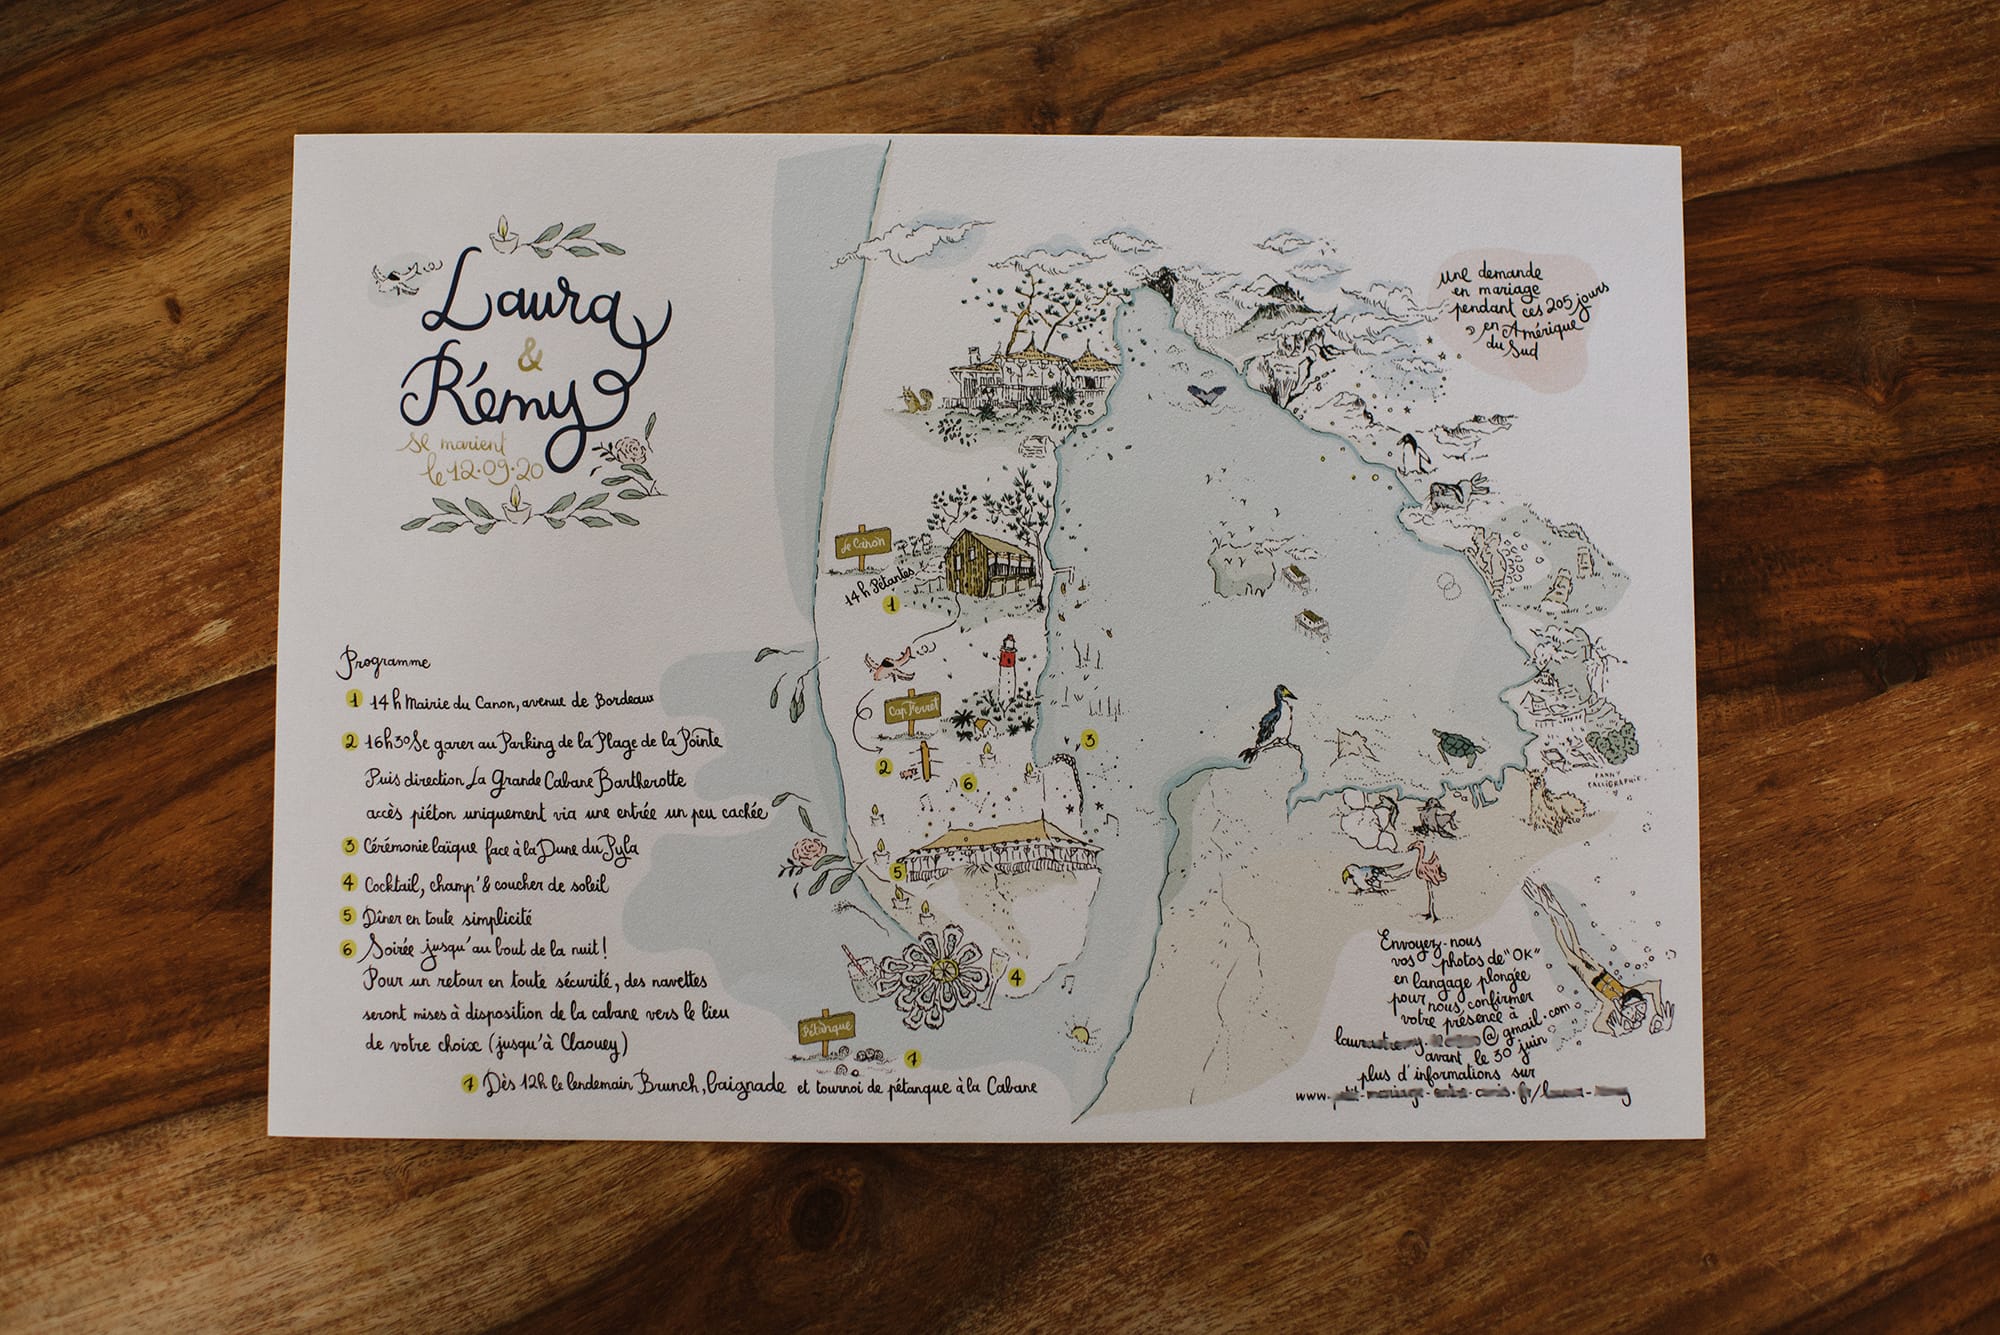 Laura
&
Rémy
se marient
le 12.09.20
Programme
1 14h Mairie du Canon, avenue de Bordeaux
2 16h30 Se garer au Parking de la Plage de la Pointe
Puis direction La Grande Cabane Bartherotte
accès piéton uniquement via une entrée un peu cachée
3 Cérémonie laïque face à la Dune du Pyla
4 Cocktail, champ' & coucher de soleil
5 Dîner en toute simplicité
6 Soirée jusqu'au bout de la nuit !
Pour un retour en toute sécurité, des navettes
seront mises à disposition de la cabane vers le lieu
de votre choix (jusqu'à Claouey)
7 Dès 12h le lendemain Brunch, baignade et tournoi de pétanque à la Cabane
Le Canon
14h Pétantes
1
Cap Ferret
2
3
6
5
4
Pétanque
7
une demande
en mariage
pendant ces 205 jours
en Amérique
du Sud
FANNY
CALLIGRAPHIE
Envoyez-nous
vos photos de "OK"
en langage plongée
pour nous confirmer
votre présence à
@gmail.com
avant le 30 juin
plus d'informations sur
www.